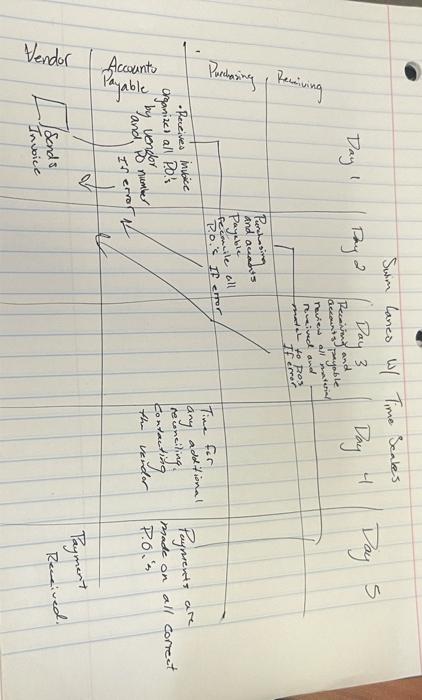 Swim Lanes W/ Time Scales
Day 1
Day 2
Day 3
Day 4
Day 5
Receiving
Receiving and
accounts payable
review all material
received and
match to POs
If error
Purchasing
Purchasing
and accounts
Payable
reconcile all
P.O.'s If error
Accounts
Payable
• Receives invoice
organizes all P.O.'s
by vendor
and PO number
If error
Time for
any additional
reconciling.
Contacting
the vendor
Payments are
made on all correct
P.O.'s
Vendor
Sends
Invoice
Payment
Received.